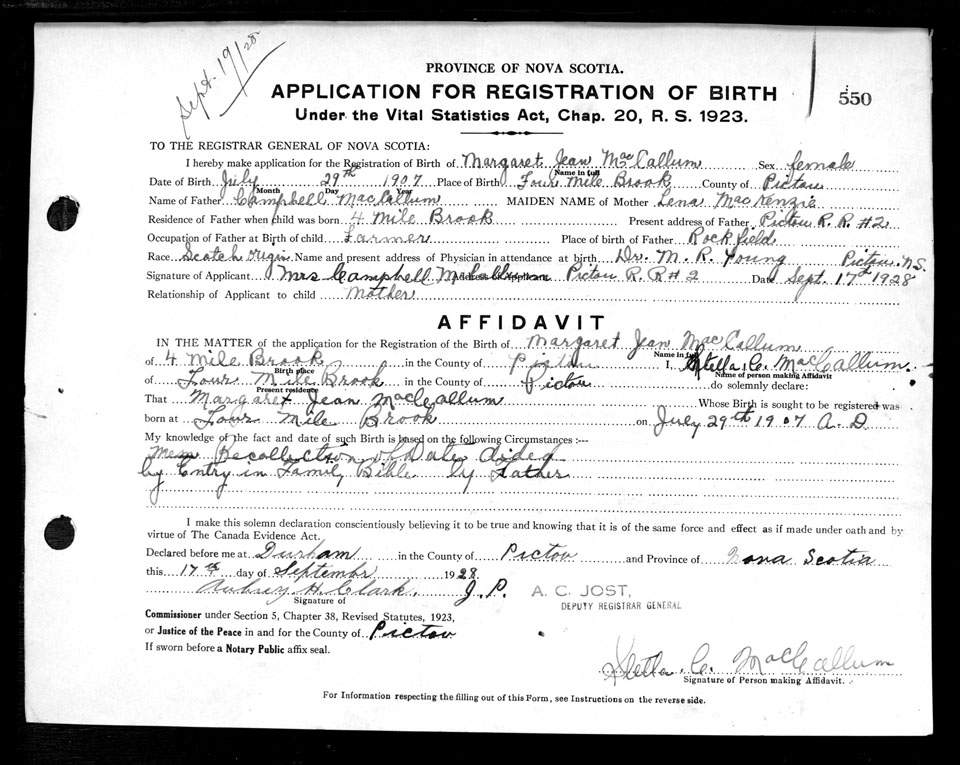 Sept. 19/28
PROVINCE OF NOVA SCOTIA.
APPLICATION FOR REGISTRATION OF BIRTH
550
Under the Vital Statistics Act, Chap. 20, R. S. 1923.
TO THE REGISTRAR GENERAL OF NOVA SCOTIA:
I hereby make application for the Registration of Birth of Margaret Jean MacCallum Sex female
Name in full
Date of Birth July 29th 1907 Place of Birth Four Mile Brook County of Pictou
Month Day Year
Name of Father Campbell MacCallum MAIDEN NAME of Mother Lena MacKenzie
Residence of Father when child was born 4 Mile Brook Present address of Father Pictou R. R. #2
Occupation of Father at Birth of child Farmer Place of birth of Father Rockfield
Race Scotch Origin Name and present address of Physician in attendance at birth Dr. M. R. Young Pictou N.S.
Signature of Applicant Mrs Campbell McCallum Address of Applicant Pictou R. R # 2 Date Sept. 17th 1928
Relationship of Applicant to child Mother
AFFIDAVIT
IN THE MATTER of the application for the Registration of the Birth of Margaret Jean MacCallum
Name in full
of 4 Mile Brook in the County of Pictou I, Stella C. MacCallum
Birth place Name of person making Affidavit
of Four Mile Brook in the County of Pictou do solemnly declare:
Present residence
That Margaret Jean MacCallum Whose Birth is sought to be registered was
born at Four Mile Brook on July 29th 1907 A. D
My knowledge of the fact and date of such Birth is based on the following Circumstances :—
Recollection of Date aided
by Entry in Family Bible by Father
I make this solemn declaration conscientiously believing it to be true and knowing that it is of the same force and effect as if made under oath and by
virtue of The Canada Evidence Act.
Declared before me at Durham in the County of Pictou and Province of Nova Scotia
this 17th day of September 1928
Aubrey H. Clark. J. P.
Signature of
A. C. JOST,
DEPUTY REGISTRAR GENERAL
Commissioner under Section 5, Chapter 38, Revised Statutes, 1923,
or Justice of the Peace in and for the County of Pictou
If sworn before a Notary Public affix seal.
Stella. C. MacCallum
Signature of Person making Affidavit.
For Information respecting the filling out of this Form, see Instructions on the reverse side.